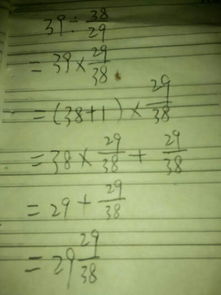 39÷38/29
=39×29/38
=(38+1)×29/38
=38×29/38+29/38
=29+29/38
=29 29/38